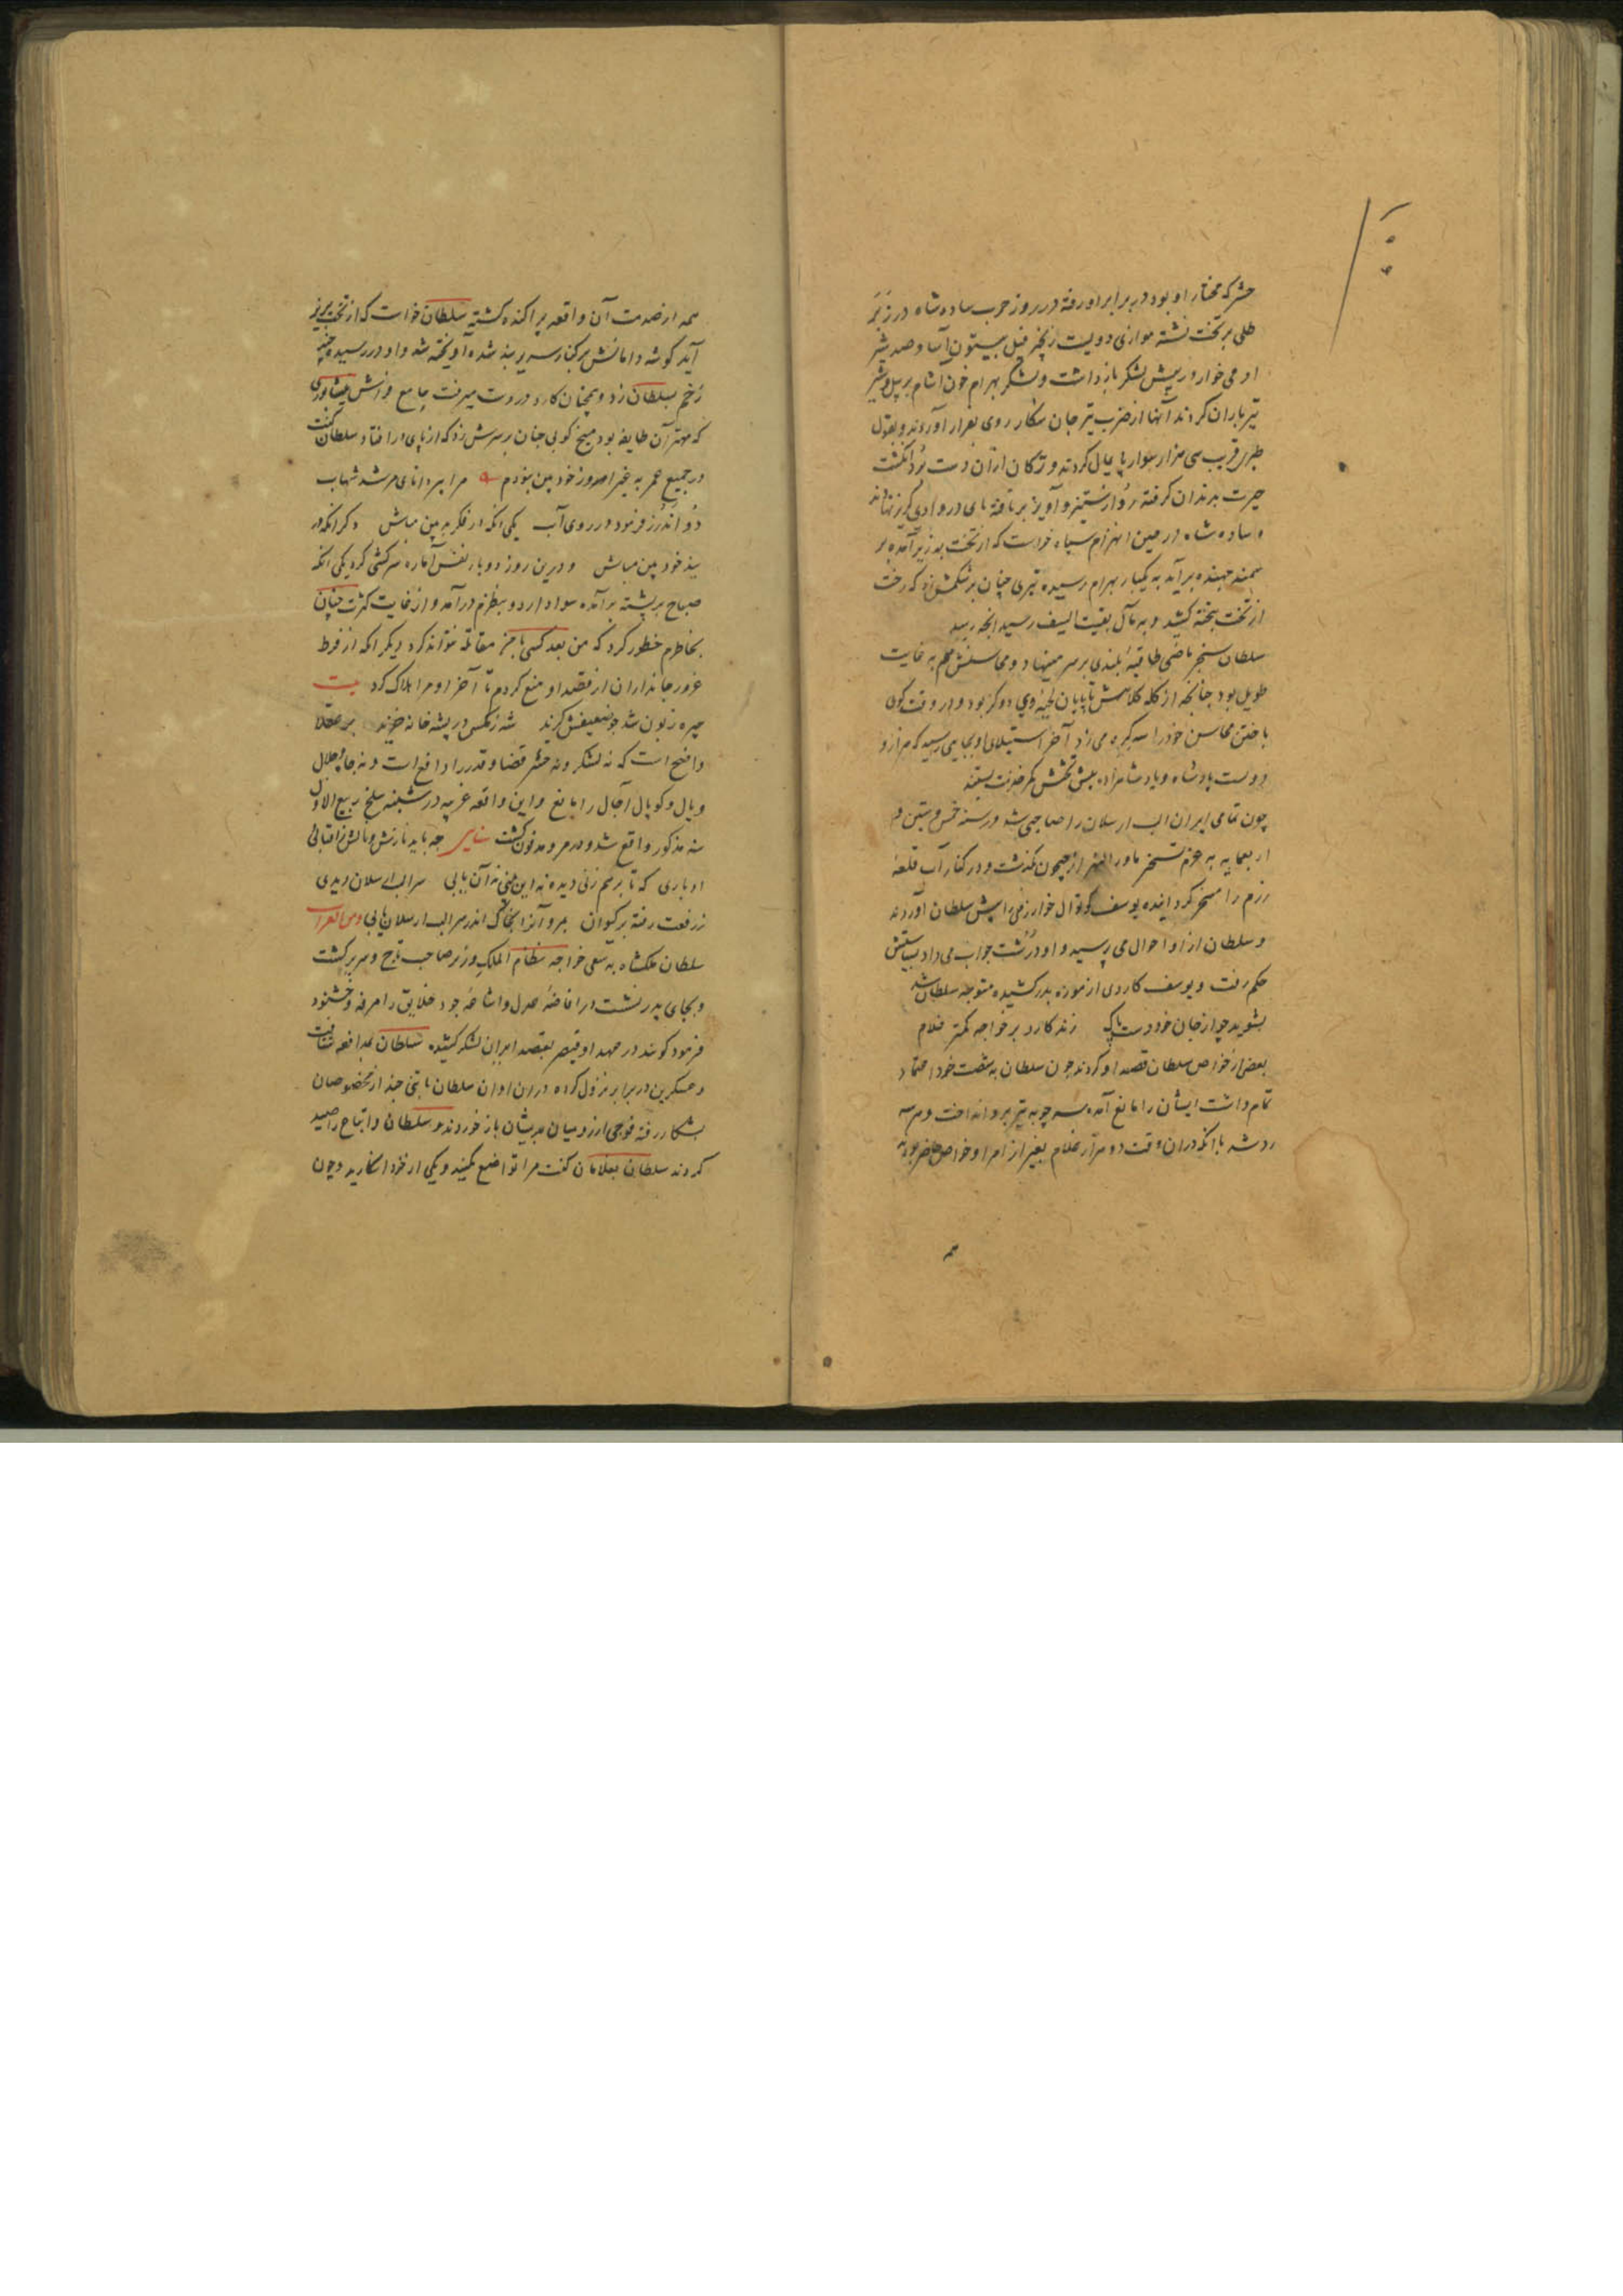 حشر که مختار او بود در برابر او رفته در روز حرب ساوه شاه در زبر
طلی بر تخت نشسته موازی دویست زنجیر فیل بیستون آسا و صد شیر
آدمی خوار در پیش لشکر بازداشت و لشکر بهرام خون آشام بر پیل و شیر
تیرباران کردند آنها از ضرب تیر جان شکار روی بفرار آوردند و بقول
طبری قریب سی هزار سوار پایمال کردند و ترکان از آن دست برد انگشت
حیرت بدندان گرفته رو از ستیز و آویز برتافته پای در وادی گریز نهادند
و ساوه شاه در عین انهزام سپاه خواست که از تخت بزیر آمده بر
سمند جهنده برآید به یکبار بهرام رسیده تیری چنان بر شکمش زد که رخت
از تخت بتخته کشید و به مآل بقیت السیف رسید انچه رسید
سلطان سنجر ماضی طاقیه بلندی بر سر مینهاد و محاسنش هم به غایت
طویل بود چنانچه از کله کلاهش تا پایان لحیه وی دو گز بود و در وقت گوی
باختن محاسن خود را سه گره می زد آخر استیلای او بجایی رسید که هزار و
دویست پادشاه و پادشاهزاده پیش تختش کمر خدمت بستند
چون تمامی ایران الب ارسلان را صاحبی شد در سنه خمس و ستین و
اربعمایه به عزم تسخیر ماوراء النهر از جیحون بگذشت و در کنار آب قلعه
رزم را مسخر گردانیده یوسف کوتوال خوارزمی را پیش سلطان آوردند
و سلطان از او احوال می پرسید و او درشت جواب می داد بسیاستش
حکم رفت و یوسف کاردی از موزه بدر کشیده متوجه سلطان شد
بشوید چو از جان خود دست پاک زند کارد بر خواجه کمتر غلام
بعضی از خواص سلطان قصد او کردند چون سلطان به شست خود اعتماد
تمام داشت ایشان را مانع آمده سه چوبه تیر برو انداخت و هر سه
رد شد با آنکه در آن وقت دو هزار غلام بغیر از امرا و خواص حاضر بودند
همه
همه از صدمت آن واقعه پراکنده گشتند سلطان خواست که از تخت بزیر
آید گوشه دامانش بر کنار سریر بند شده آویخته شد و او در رسیده چند
زخم بسلطان زد و همچنان کارد در دست میرفت جامع فراش نیشابوری
که مهتر آن طایفه بود میخ کوبی چنان بر سرش زد که از پای در افتاد سلطان گفت
در جمیع عمر به غیر امروز خود بین نبودم مرا پیر دانای مرشد شهاب
دو اندرز فرمود در روی آب یکی آنکه در بد بین مباش دگر آنکه در
خود بین مباش و درین روز دو بار نفس اماره سرکشی کرد یکی آنکه
صباح بر پشته برآمده سواد اردو بنظرم درآمد و از غایت کثرت چنان
بخاطرم خطور کرد که من بعد کسی با من مقاتله نتواند کرد دیگر آنکه از فرط
غرور جانداران از قصد او منع کردم تا آخر او مرا هلاک کرد بیت
چیره زبون شد چو ضعیفش گزند شه ز مگس در پشه خانه خزند بر عقلا
واضح است که نه لشکر و نه حشر قضا و قدر را دافع است و نه جاه و جلال
و یال و کوپال آجال را مانع و این واقعه غریبه در شنبه سلخ ربیع الاول
سنه مذکور واقع شد و در مرو مدفون گشت سنایی چه باید نازش و مالش ز اقبالی و
ادباری که تا بر هم زنی دیده نه این بینی نه آن یابی سر الب ارسلان دیدی
ز رفعت رفته بر گردون بمرو آ تا بخاک اندر سر الب ارسلان یابی
سلطان ملکشاه به سعی خواجه نظام الملک وزیر صاحب تاج و سریر گشت
و بجای پدر نشست در افاضه عدل و اشاعه جود خلایق را مرفه و خشنود
فرمود گویند در عهد او قیصر بقصد ایران لشکر کشیده سلطان بمدافعه شتافت
و عسکرین در برابر نزول کرده در آن اوان سلطان با تنی چند از مخصوصان
بشکار رفته فوجی از رومیان بدیشان باز خوردند و سلطان و اتباع را صید
کردند سلطان بغلامان گفت مرا تواضع مکنید و یکی از خود انگارید و چون